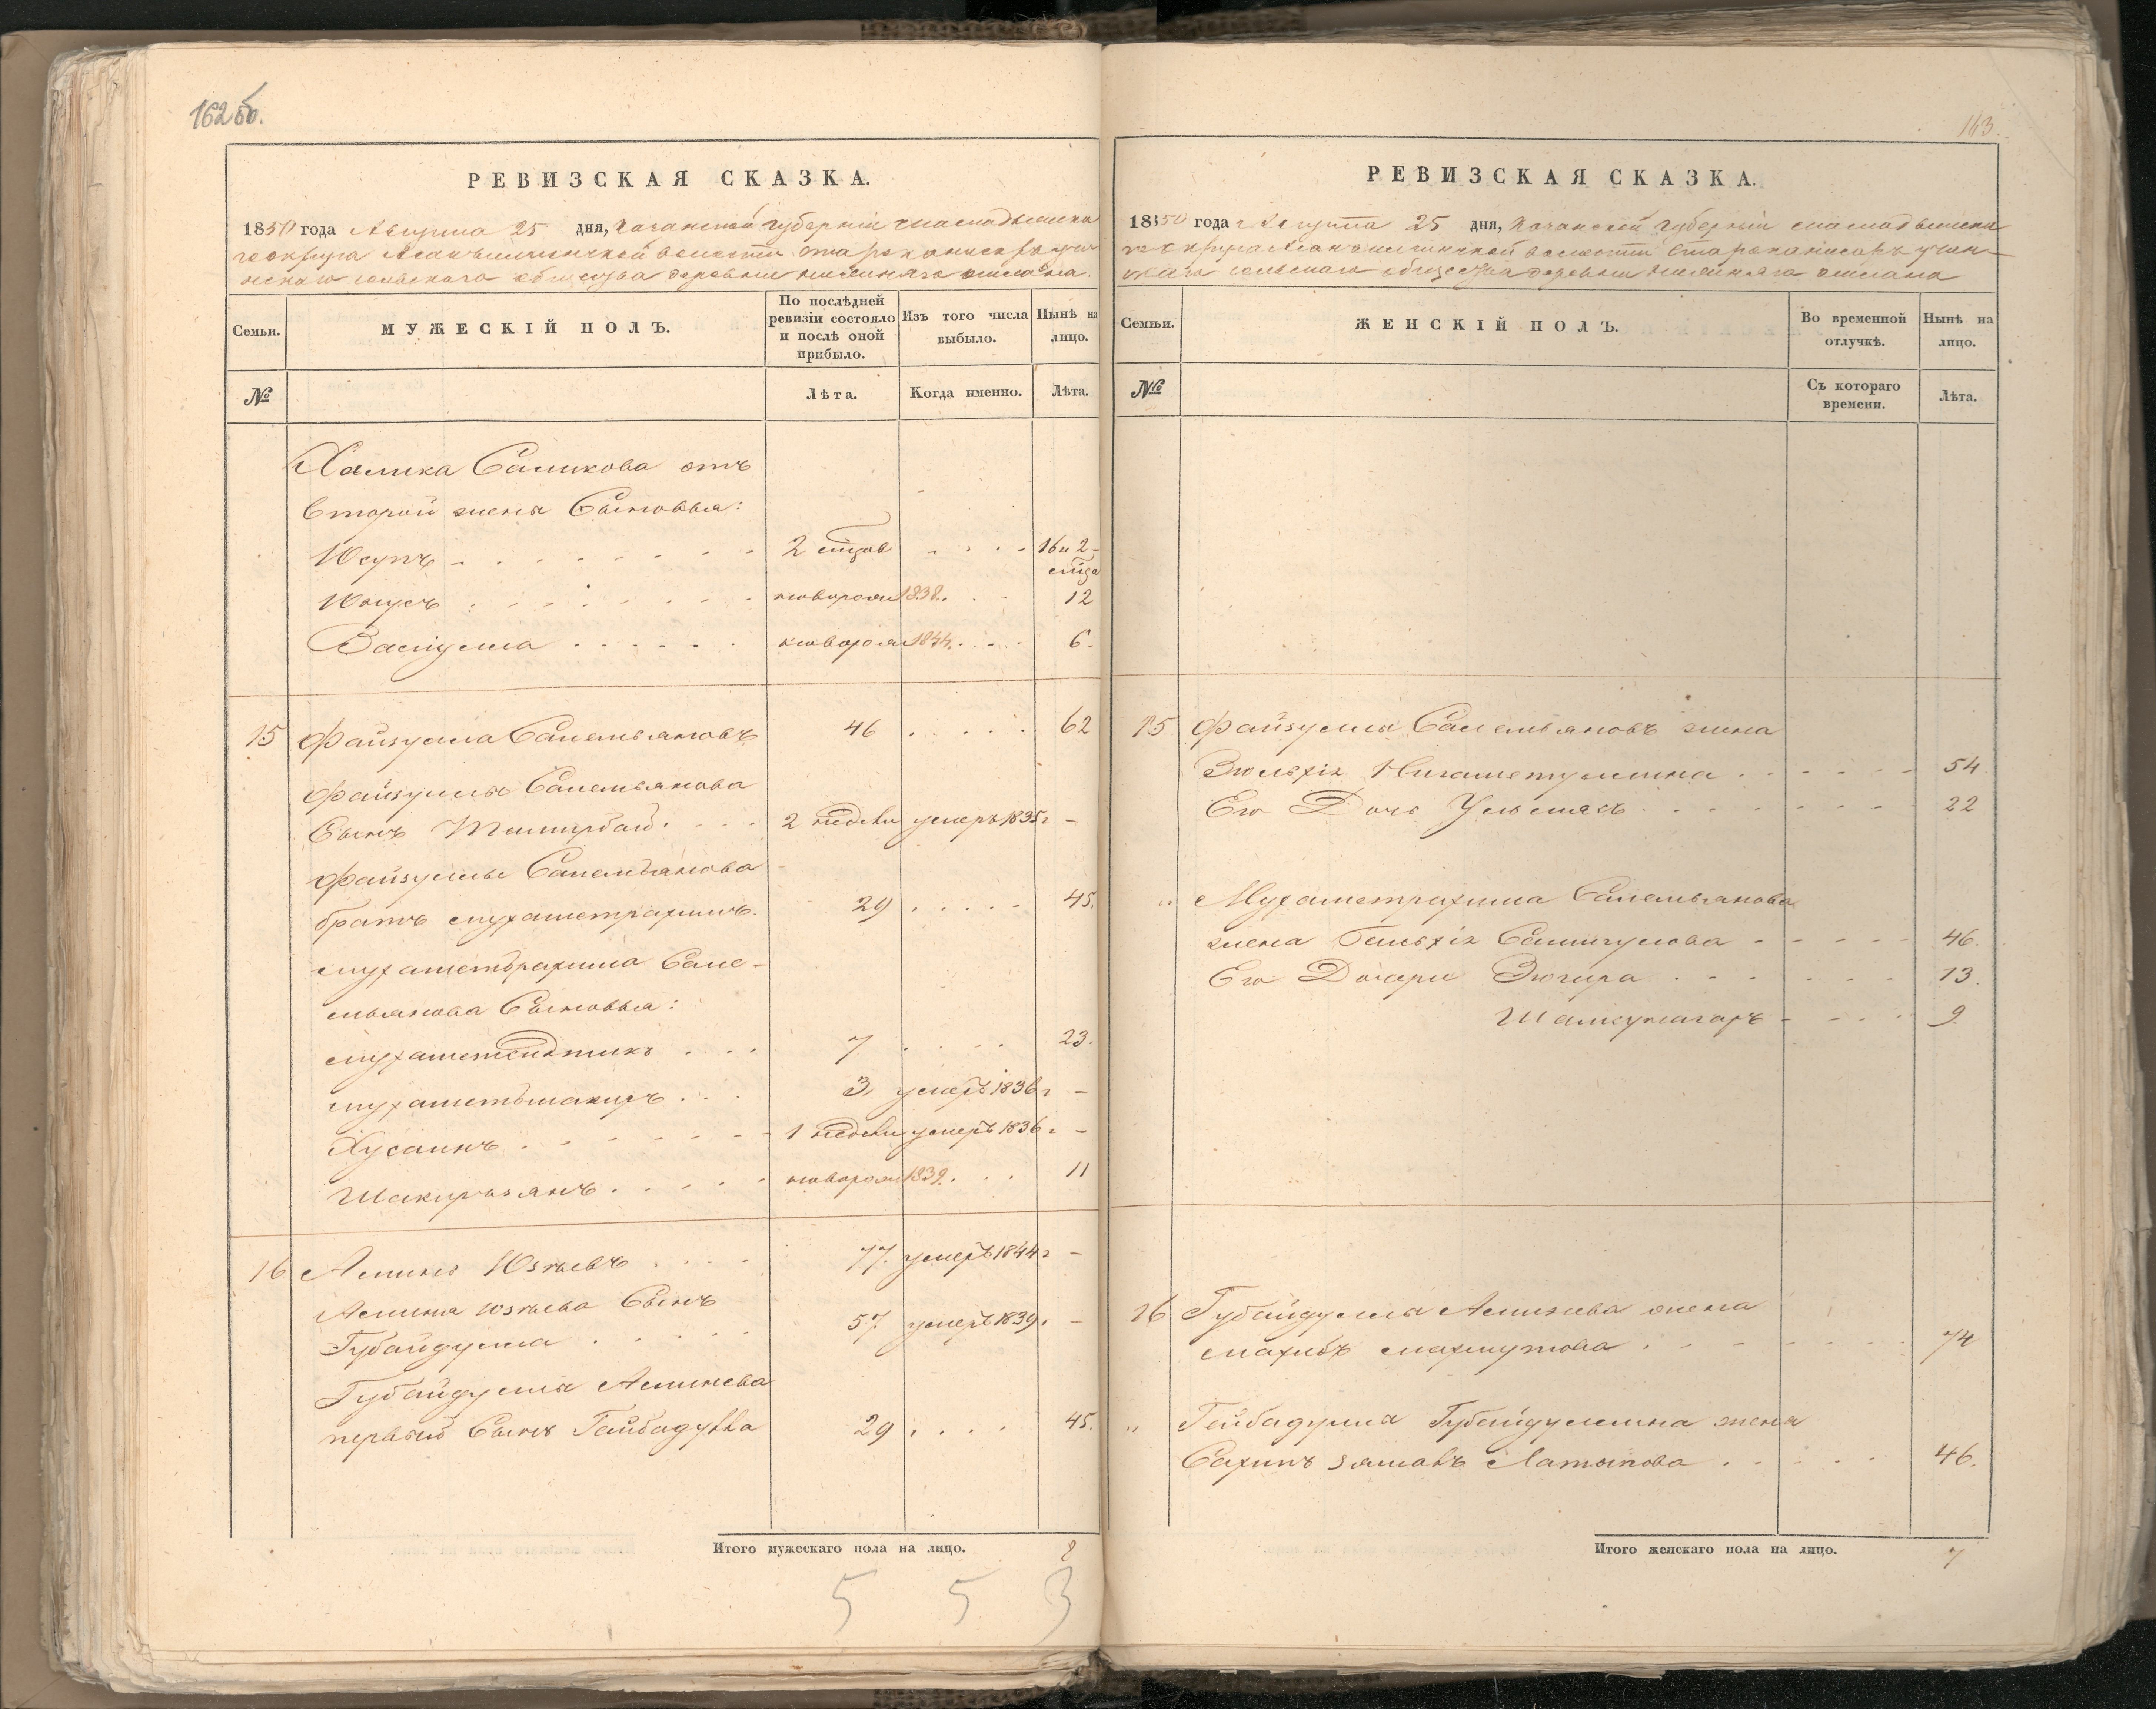 162 об.
РЕВИЗСКАЯ СКАЗКА.
1850 года Августа 25 дня, Казанской губернiи Мамадышска
го округа волости
сельскаго общества деревни
Семьи.
МУЖЕСКІЙ ПОЛЪ.
По послѣдней ревизіи состояло и послѣ оной прибыло.
Изъ того числа выбыло.
Нынѣ на лицо.
№
Лѣта.
Когда именно.
Лѣта.
Халика Саликова отъ
второй жены Сыновья:
Юсупъ 2 мѣсцов 16 и 2
мѣсца
Юнусъ новорож 1838. 12
Валiулла новорож 1844. 6.
15 Файзулла Самельяновъ 46 62
Файзуллы Самельянова
Сынъ Тимирбай 2 недели умеръ 1835 г -
Файзуллы Самельянова
братъ Мухаметрахимъ. 29 45.
Мухаметрахима Саме-
льянова Сыновья:
Мухаметсадыкъ 7 23.
Мухаметшакиръ 3 умеръ 1836 г -
Хусаинъ 1 недели умеръ 1836 г -
Шакирзянъ новорож 1839. 11
16 Аминъ Юзѣевъ 77. умеръ 1844 г -
Амина Юзѣева Сынъ
Губайдулла 57 умеръ 1839 г -
Губайдуллы Аминева
первый Сынъ Гайбадулла 29 45.
Итого мужескаго пола на лицо. 8
5 5 3
163.
РЕВИЗСКАЯ СКАЗКА.
1850 года Августа 25 дня, Казанской губернiи Мамадышска
го округа волости
сельскаго общества деревни
Семьи.
ЖЕНСКІЙ ПОЛЪ.
Во временной отлучкѣ.
Нынѣ на лицо.
№
Съ котораго времени.
Лѣта.
15 Файзуллы Самельяновъ жена
Зюльхія Нигаметуллина 54
Его Дочь 22
" Мухаметрахима Самельянова
жена Гальхія Салигулова 46.
Его Дочери Зюгира 13.
Шамсунагаръ 9.
16 Губайдуллы Аминева жена
Махмутова 74
" Гейбадулла Губайдуллина жена
Латыпова 46.
Итого женскаго пола на лицо. 7